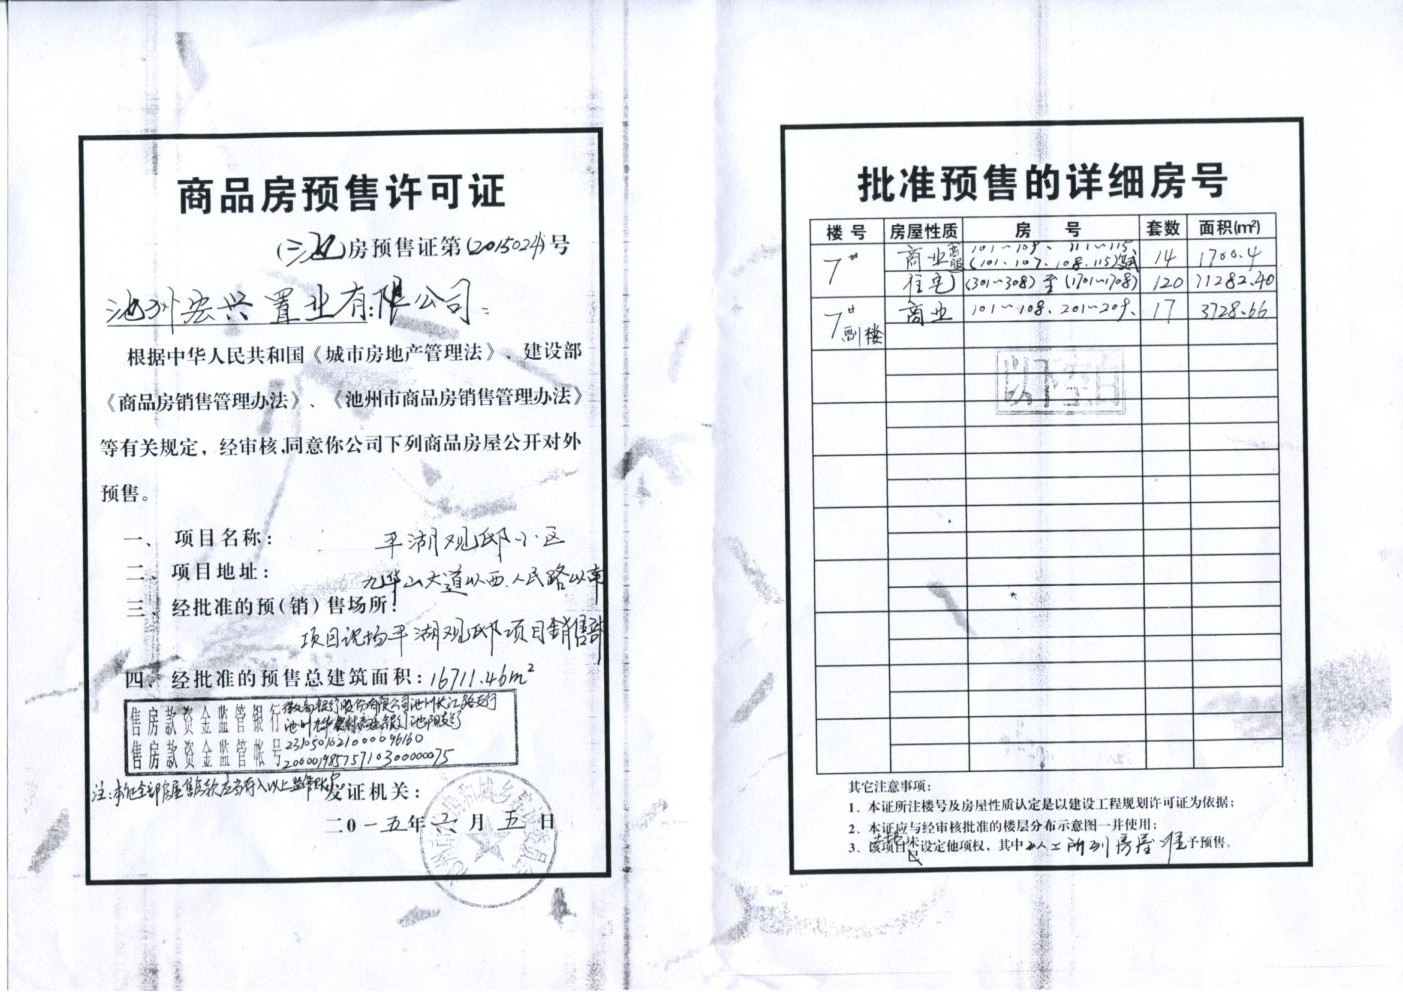 商品房预售许可证
(池)房预售证第(2015024)号
池州宏兴置业有限公司:
根据中华人民共和国《城市房地产管理法》、建设部
《商品房销售管理办法》、《池州市商品房销售管理办法》
等有关规定，经审核,同意你公司下列商品房屋公开对外
预售。
一、项目名称: 平湖观邸小区
二、项目地址: 九华山大道以西、人民路以南
三、经批准的预(销)售场所:
项目现场平湖观邸项目销售部
四、经批准的预售总建筑面积: 16711.46m²
售房款资金监管银行
售房款资金监管帐号 2310501021000096160
20000198575710300000075
发证机关:
二0一五年六月五日
批准预售的详细房号
楼号 房屋性质 房号 套数 面积(㎡)
7# 商业 101~109、111~115、 14 1700.4
(101、107、108、115)
住宅 (301~308)至(1701~1708) 120 11282.40
7#副楼 商业 101~108、201~209、 17 3728.66
以下空白
其它注意事项:
1、本证所注楼号及房屋性质认定是以建设工程规划许可证为依据;
2、本证应与经审核批准的楼层分布示意图一并使用;
3、该项目 设定他项权，其中 以上所列房屋准予预售。